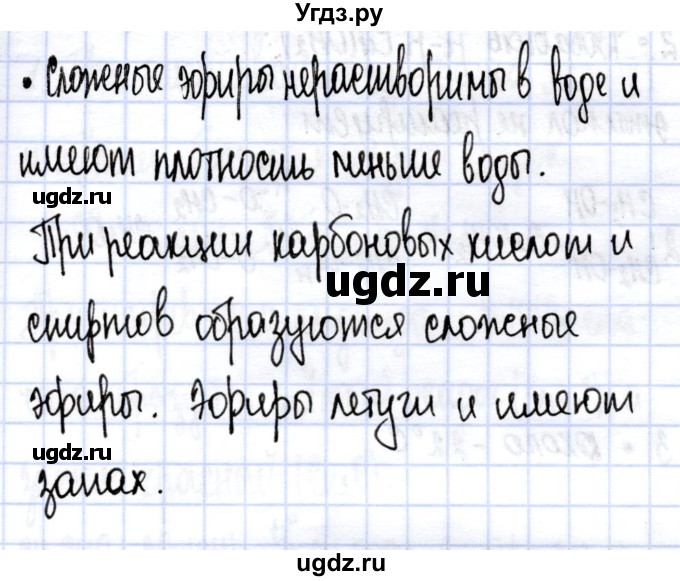 Угдз.ру
• Сложеные эфиры нерастворимы в воде и
имеют плотность меньше воды.
ugdz.ru ugdz.ru
При реакции карбоновых кислот и
ugdz.ru
спиртов образуются сложеные
эфиры. Эфиры летучи и имеют
ugdz.ru ugdz.ru
запах.
ugdz.ru